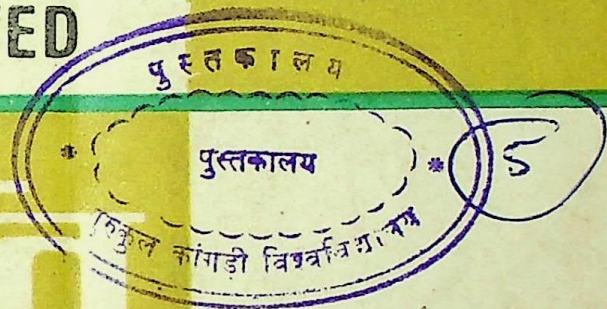 ED
पुस्तकालय
* पुस्तकालय * 5
गुरुकुल कांगड़ी विश्वविद्यालय